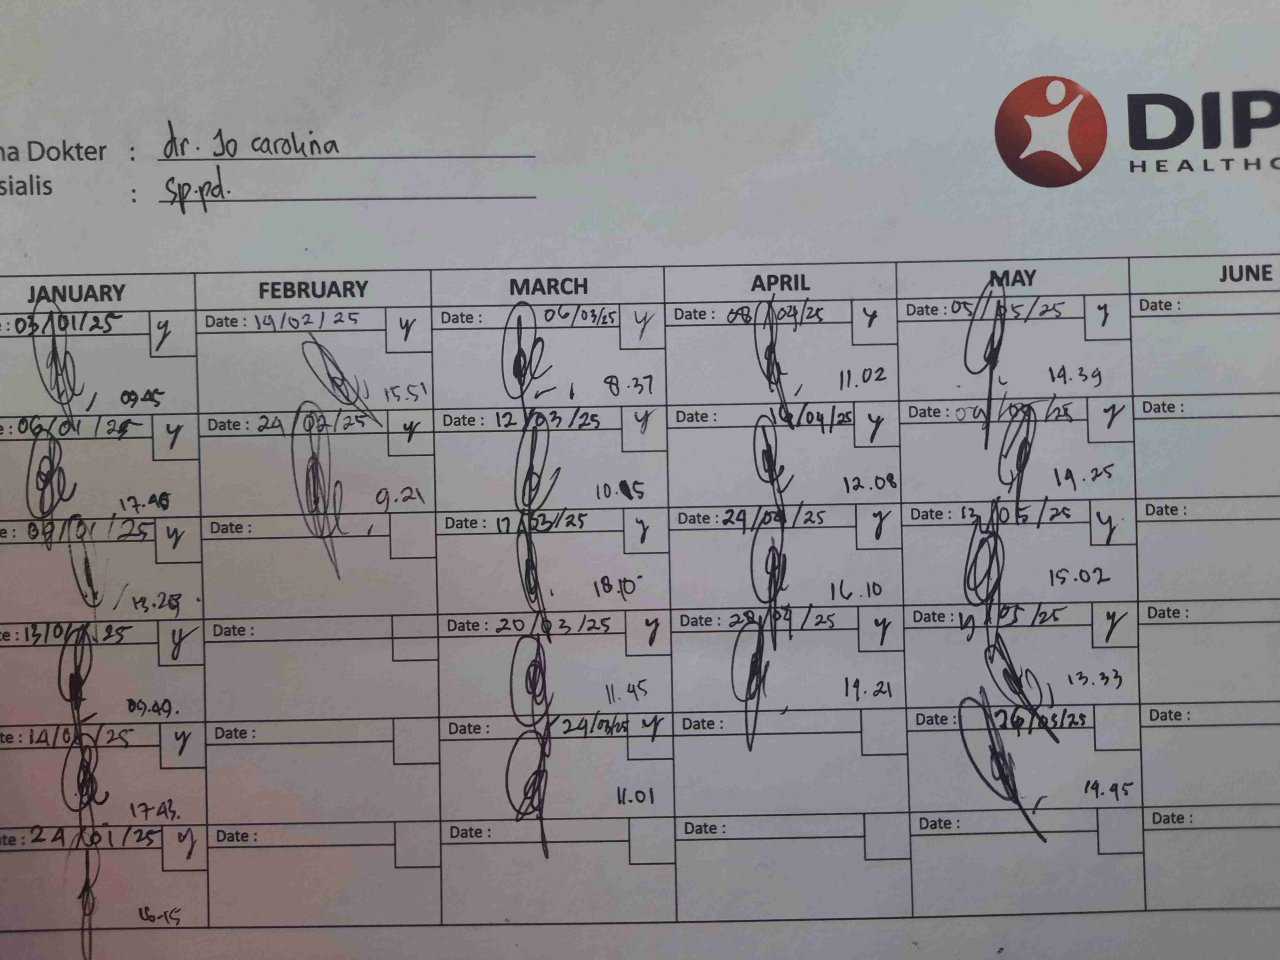 na Dokter : dr. Jo carolina
sialis : Sp.pd.
DIP
HEALTHC
JANUARY FEBRUARY MARCH APRIL MAY JUNE
e : 03/01/25 y Date : 19/02/25 y Date : 06/03/25 y Date : 08/04/25 y Date : 05/05/25 y Date :
09.45 15.51 8.37 11.02 14.39
e : 06/01/25 y Date : 24/02/25 y Date : 12/03/25 y Date : /04/25 y Date : 25 y Date :
9.21 12.08 19.25
e: 25 y Date : Date : 17/03/25 y Date : 24/04/25 y Date : 13/05/25 y Date :
18.10 16.10 15.02
te : 13/01/25 y Date : Date : 20/03/25 y Date : 28/04/25 y Date : /05/25 y Date :
09.49. 11.45 19.21 13.33
te : 14/01/25 y Date : 24/03/25 y Date : Date : /25 Date :
17.43. 11.01 19.45
te : 24/01/25 y Date : Date : Date : Date : Date :
16.15